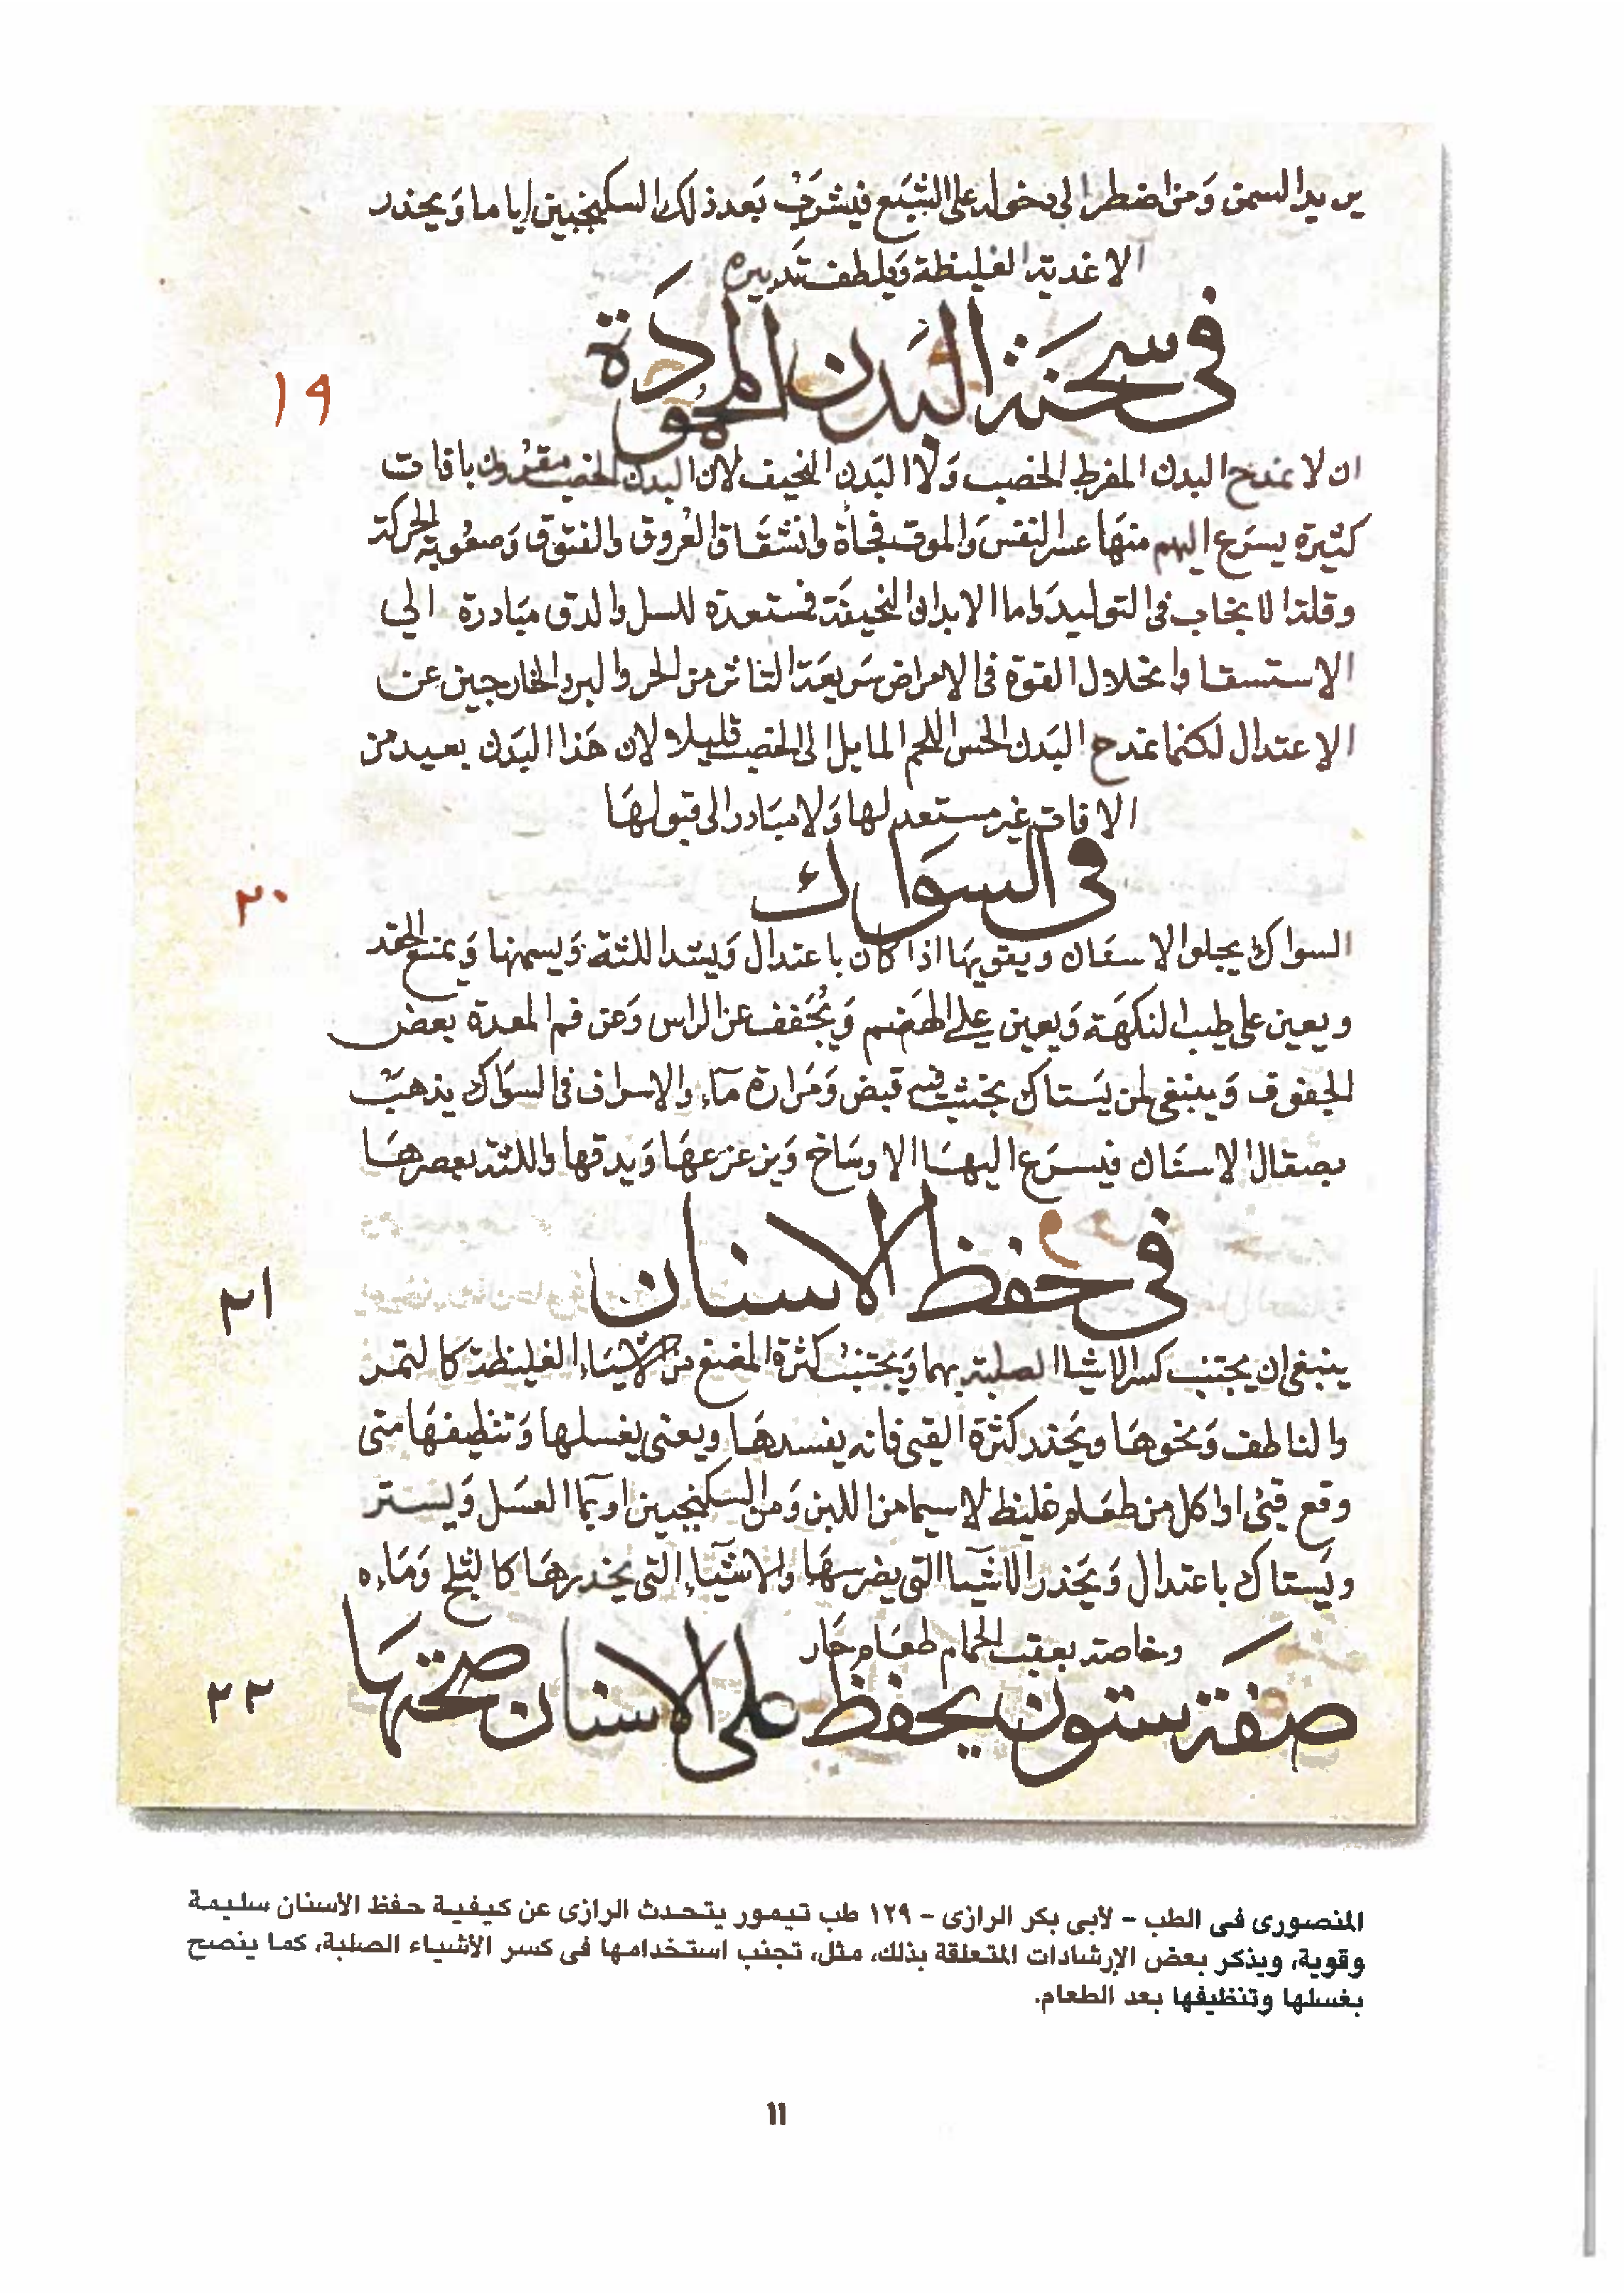 يريد السمن ومن اضطر الى دخوله على الشبع فيشرب بعد ذلك السكنجبين اياما ويحذر
الاغدية الغليظة ويلطف تدبيره
فى سحنة البدن المحمودة
١٩
ان لا نمدح البدن المفرط الخصب ولا البدن النحيف لان البدن الخصب مقرون بافات
كثيرة يسرع اليهم منها عسر النفس والموت فجأة وانشقاق العروق والفتوق وصعوبة الحركة
وقلة الانجاب فى التوليد واما الابدان النحيفة فمستعدة للسل والدق مبادرة الي
الاستسقا وانحلال القوة فى الامراض سريعة التاثر من الحر والبرد الخارجين عن
الاعتدال لكنما نمدح البدن الحسن اللحم المايل الى الخصب قليلا لان هذا البدن بعيد من
الافات غير مستعد لها ولا مبادر الى قبولها
فى السواك
٢٠
السواك يجلو الاسنان ويقويها اذا كان باعتدال ويشد اللثة ويسمنها ويمنع الحفر
ويعين على طيب النكهة ويعين علي الهضم ويخفف عن الراس وعن فم المعدة بعض
الجفوف وينبغى لمن يستاك بخشب فيه قبض ومرارة ماء والاسراف فى السواك يذهب
بصقال الاسنان فيسرع اليها الاوساخ ويزعزعها ويدقها واللثة يعصرها
فى حفظ الاسنان
٢١
ينبغى ان يجتنب كسر الاشيا الصلبة بها ويجتنب كثرة المضغ من الاشياء الغليظة كالتمر
والناطف ونحوها ويحذر كثرة القئ فانه يفسدها ويعنى بغسلها وتنظيفها متى
وقع قئ او اكل من طعام غليظ لاسيما من اللبن ومن السكنجبين او بماء العسل ويستر
ويستاك باعتدال ويحذر الاشيا التى يضرسها والاشياء التى يخدرها كالثلج وماءه
وخاصة بعقب الحمام طعام حار
صفة سنون يحفظ على الاسنان صحتها
٢٢
المنصورى فى الطب - لأبى بكر الرازى - ١٢٩ طب تيمور يتحدث الرازى عن كيفية حفظ الأسنان سليمة
وقوية، ويذكر بعض الإرشادات المتعلقة بذلك، مثل، تجنب استخدامها فى كسر الأشياء الصلبة، كما ينصح
بغسلها وتنظيفها بعد الطعام.
١١